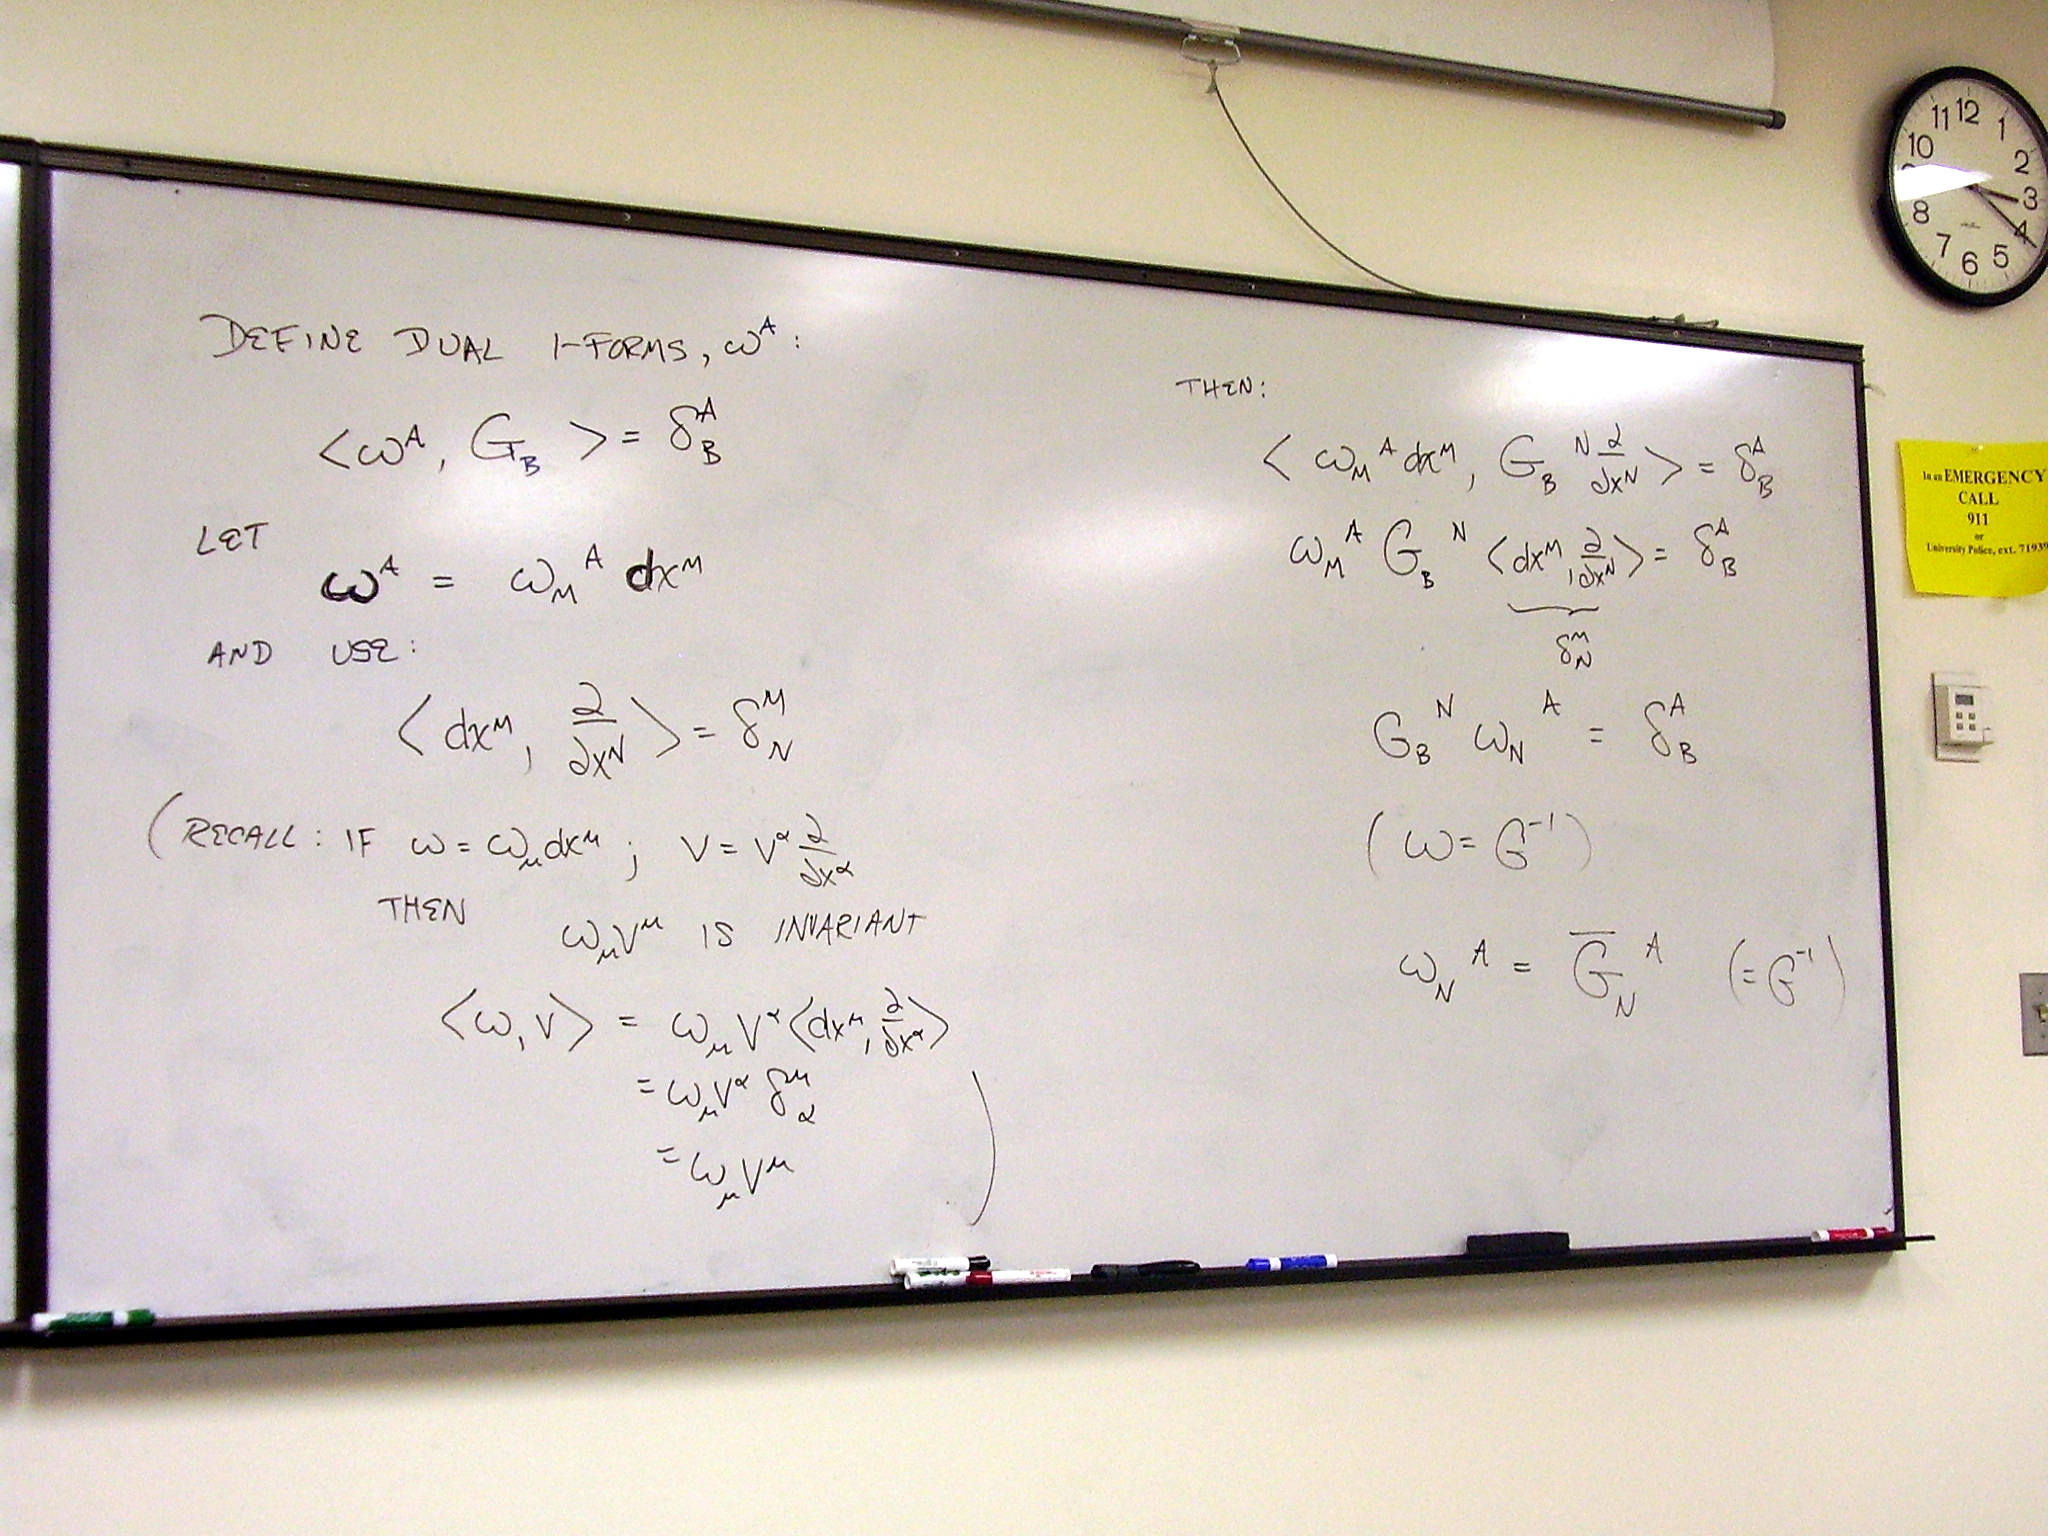 DEFINE DUAL 1-FORMS, ω^A :
<ω^A, G_B> = δ^A_B
LET
ω^A = ω_M^A dx^M
AND USE:
<dx^M, ∂/∂x^N> = δ^M_N
(RECALL: IF ω = ω_μ dx^μ ; V = V^α ∂/∂x^α
THEN
ω_μ V^μ IS INVARIANT
<ω, V> = ω_μ V^α <dx^μ, ∂/∂x^α>
= ω_μ V^α δ^μ_α
= ω_μ V^μ )
THEN:
<ω_M^A dx^M, G_B^N ∂/∂x^N> = δ^A_B
ω_M^A G_B^N <dx^M, ∂/∂x^N> = δ^A_B
δ^M_N
G_B^N ω_N^A = δ^A_B
(ω = G^-1)
ω_N^A = G̅_N^A (= G^-1)
11 12 1
10 2
3
8 4
7 6 5
In an EMERGENCY
CALL
911
or
University Police, ext. 71939